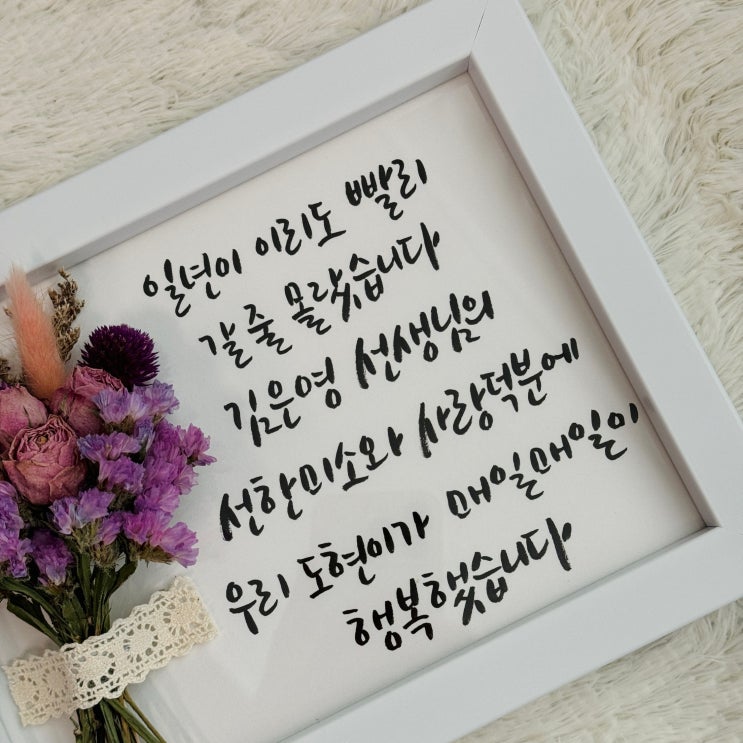 일년이 이리도 빨리
갈 줄 몰랐습니다
김은영 선생님의
선한미소와 사랑덕분에
우리 도현이가 매일매일이
행복했습니다